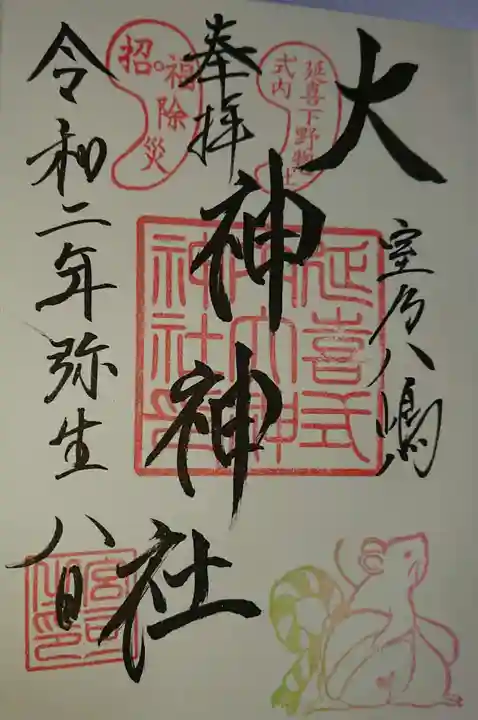 延喜下野惣社
式内
室乃八嶋
大神神社
奉拝
招福除災
令和二年弥生八日
延喜式
内大神
神社印
宮司之印